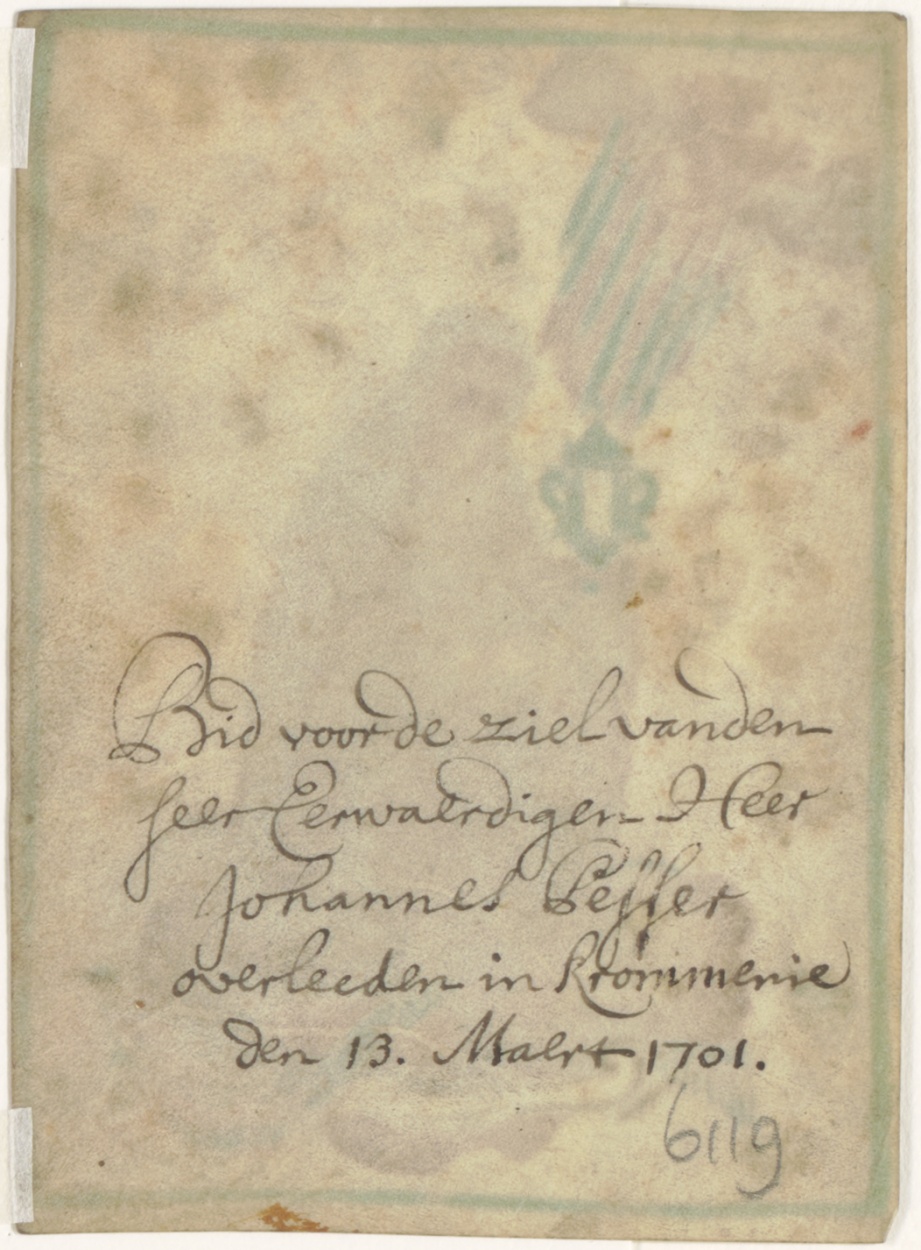 Bid voor de ziel vanden
seer Eerwaerdigen Heer
Johannes Pesser
overleeden in Krommenie
den 13. Maert 1701.
6119